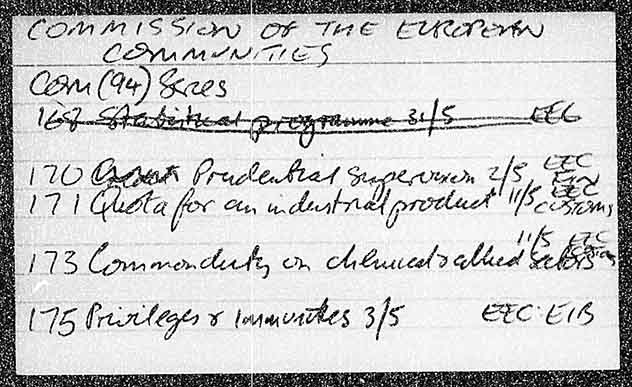 COMMISSION OF THE EUROPEAN
COMMUNITIES
COM (94) Series
Statistical programme 31/5 EEC
170 Prudential Supervision 2/5 EEC FIN
171 Quota for an industrial product 11/5 EEC CUSTOMS
11/5 EEC
173 Common duty on chemical & allied sectors
175 Privileges & Immunities 3/5 EEC EIB